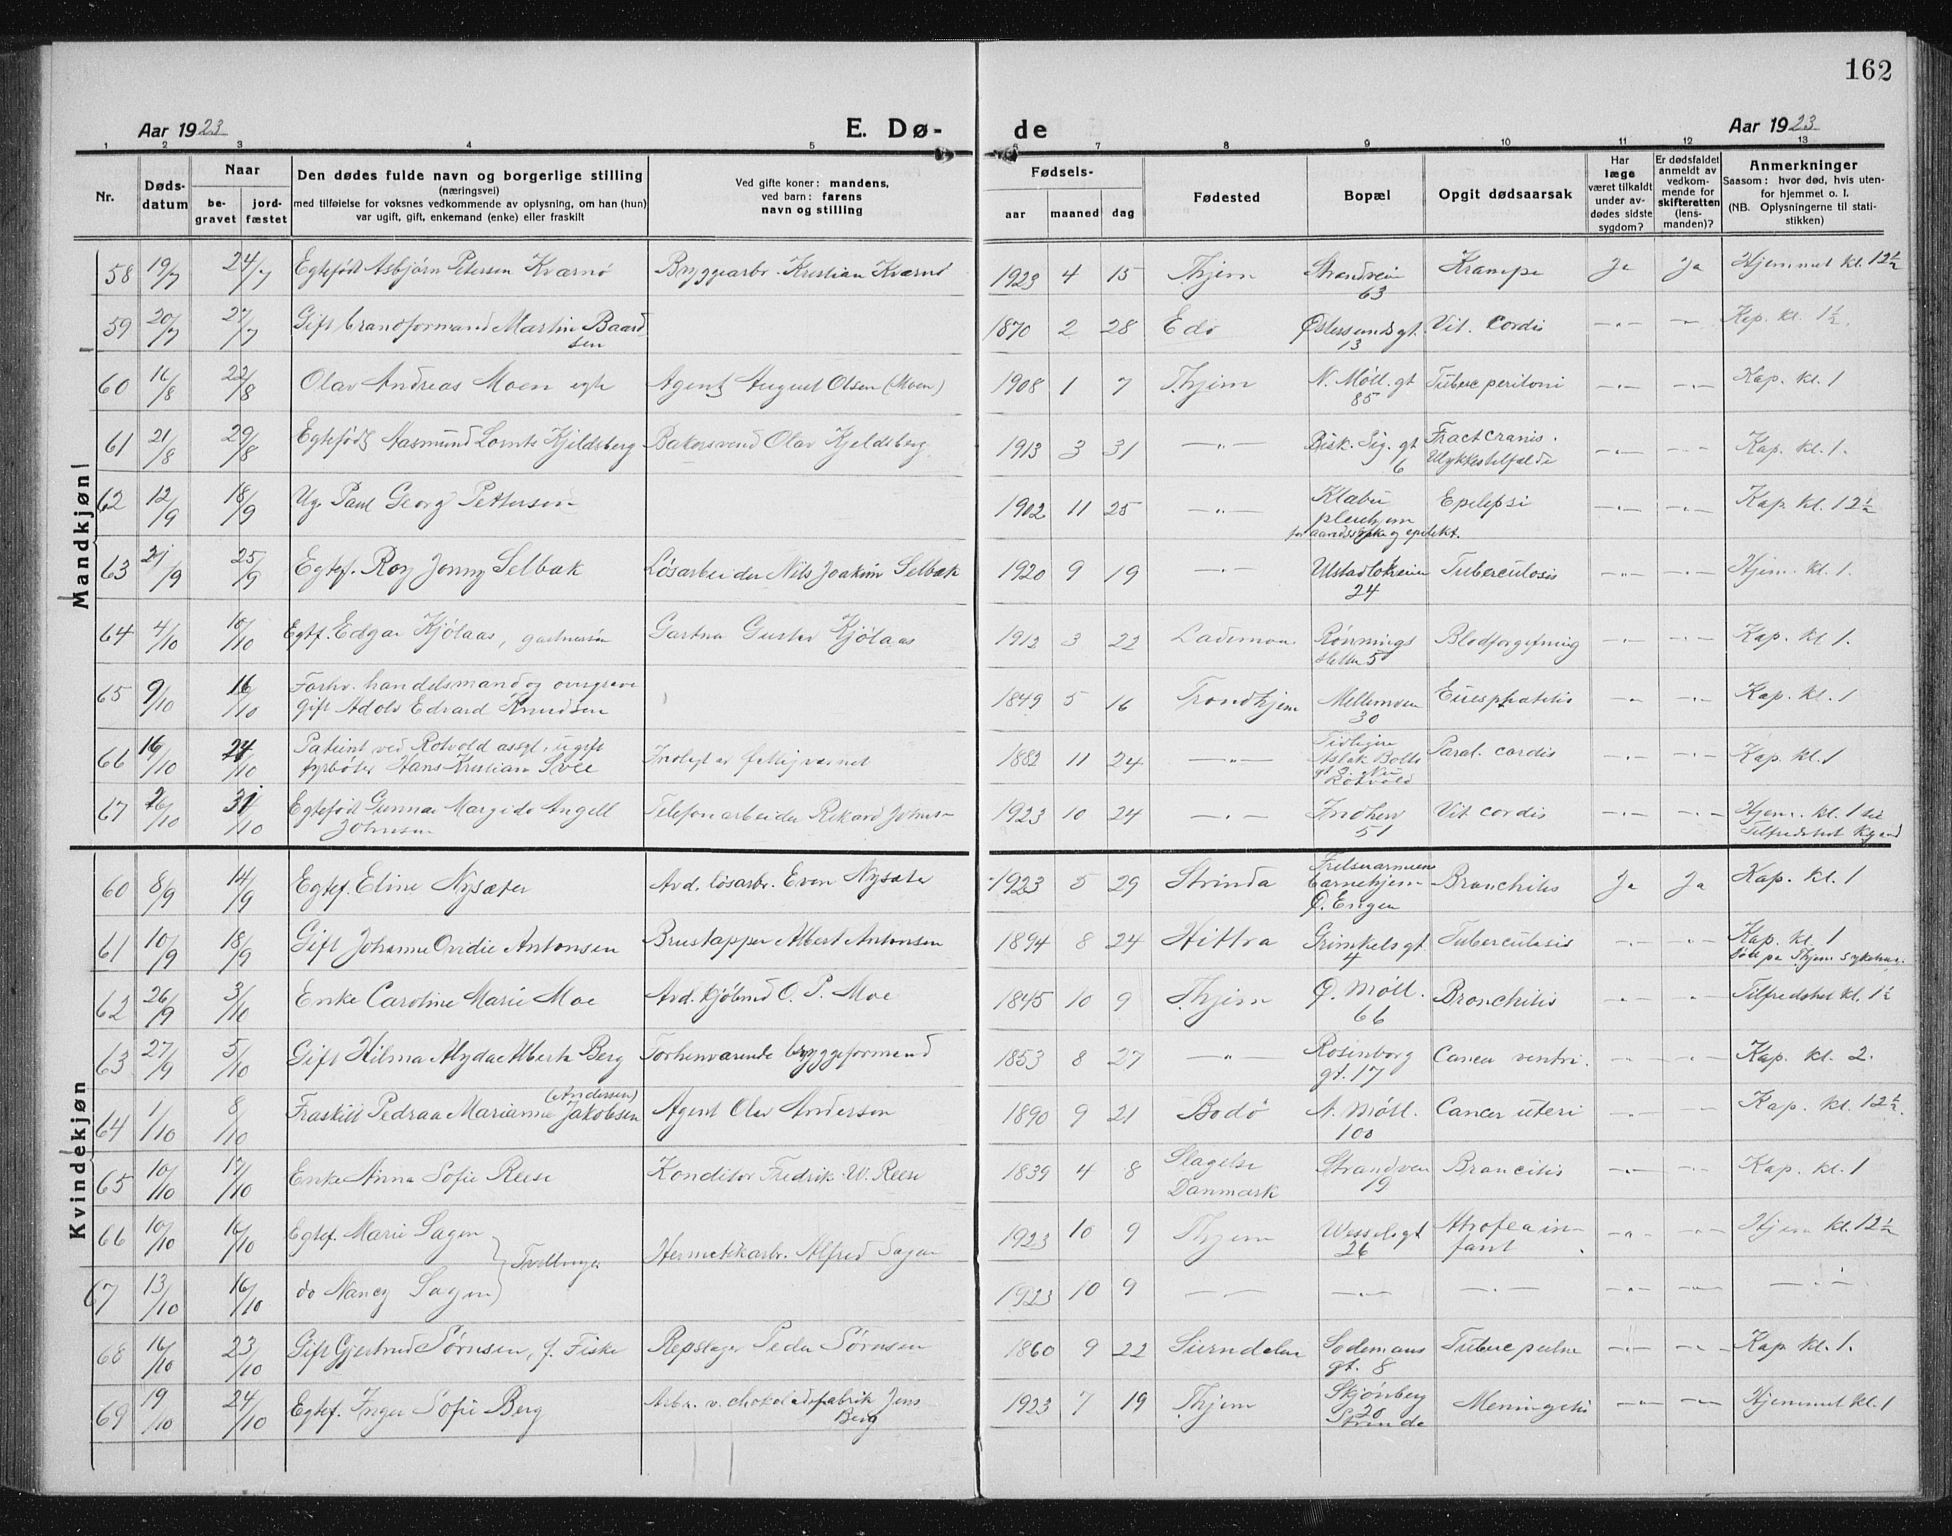 162
Aar 1923
E. Dø-
de
Aar 1923
1 2 3 4 5 6 7 8 9 10 11 12 13
Nr.
Døds-
datum
Naar
be-
gravet
jord-
fæstet
Den dødes fulde navn og borgerlige stilling
(næringsvei)
med tilføielse for voksnes vedkommende av oplysning, om han (hun)
var ugift, gift, enkemand (enke) eller fraskilt
Ved gifte koner: mandens,
ved barn: farens
navn og stilling
Fødsels-
aar maaned dag
Fødested
Bopæl
Opgit dødsaarsak
Har
læge
været tilkaldt
under av-
dødes sidste
sygdom?
Er dødsfaldet
anmeldt av
vedkom-
mende for
skifteretten
(lens-
manden)?
Anmerkninger
Saasom: hvor død, hvis uten-
for hjemmet o. l.
(NB. Oplysningerne til stati-
stikken)
Mandkjøn
58 19/7 24/7 Egtefødt Asbjørn Petersen Kværnø Bryggearb. Kristian Kværnø 1923 4 15 Thjem Strandveien 63 Krampe Ja Ja Hjemmet kl. 12½
59 20/7 27/7 Gift brandformand Martin Baardsen 1870 2 28 Edø Østersundsgt. 13 Vit. Cordis -„- -„- Kap. kl. 1½.
60 16/8 22/8 Olav Andreas Moen egte Agent August Olsen (Moen) 1908 1 7 Thjem N. Møll. gt 85 Tuberc peritoni -„- -„- Kap. kl. 1
61 21/8 29/8 Egtefødt Aasmund Lornts Kjeldsberg Bakersvend Olav Kjeldsberg. 1913 3 31 -„- Bisk. Sig. gt 6 Fract cranis. Ulykkestilfælde -„- -„- Kap. kl. 1.
62 12/9 18/9 Ug. Paul Georg Pettersen 1902 11 25 -„- Klæbu pleiehjem for aandssyke og epilekt. Epelepsi -„- -„- Kap. kl. 12½
63 21/9 25/9 Egtef. Roy Jonny Selbæk Løsarbeider Nils Joakim Selbæk 1920 9 19 -„- Ulstadløkveien 24 Tuberculosis -„- -„- Hjem. kl. 1.
64 4/10 10/10 Egtf. Edgar Kjölaas, gartnersøn Gartner Gustav Kjölaas 1912 3 22 Lademoen Rønnings sletta 5 Blodforgiftning -„- -„- Kap. kl 1.
65 9/10 16/10 Forhv. handelsmand og gift Adolv Edvard Knudsen 1849 5 16 Trondhjem Mellemveien 30 -„- -„- Kap. kl. 1
66 16/10 24/10 Patient ved Rotvold asyl. ugift fyrbøter Hans Kristian Svee Indlagt av fattigvæsnet 1882 11 24 -„- Tidligere Aslak Bolts gt 3. Nu Rotvold Paral. cordis -„- -„- Kap. kl. 1
67 26/10 31/10 Egtefødt Gunnar Margido Angell Johnsen Telefonarbeider Rikard Johnsen 1923 10 24 -„- Indherv 51 Vit cordis -„- -„- Hjem. kl. 1 til Tilfredshet Kgaard
Kvindekjøn
60 8/9 14/9 Egtef. Eline Nysæter Avd. løsarbr. Even Nysæter 1923 5 29 Strinda Frelsesarmeens Barnehjem Ø. Engen Bronchitis Ja Ja Kap. kl. 1
61 10/9 18/9 Gift Johanne Ovidie Antonsen Brustapper Albert Antonsen 1894 8 24 Hittra Grimkelsgt. 4 Tuberculosis -„- -„- Kap. kl. 1 Død pa Thjems sykehus.
62 26/9 3/10 Enke Caroline Marie Moe Avd. kjøbmd O. P. Moe 1845 10 9 Thjem Ø. Møll. 66 Bronchitis -„- -„- Tilfredshet kl. 1½
63 27/9 5/10 Gift Hilma Alyda Alberta Berg Forhenværende byggeformend 1853 8 27 -„- Rosenborg gt. 17 Cancer ventri. -„- -„- Kap. kl. 2.
64 1/10 8/10 Fraskilt Pedraa Marianne (Andersen) Jakobsen Agent Olav Andersen 1890 9 21 Bodö N. Møll. 100 Cancer uteri -„- -„- Kap. kl. 12½.
65 10/10 17/10 Enke Anna Sofie Reese Konditor Fredrik W. Reese 1839 4 8 Slagelse Danmark Strandven 19 Broncitis -„- -„- Kap. kl. 1
66 10/10 16/10 Egtef. Marie Sagen } Tvillinger Hermetikarb. Alfred Sagen 1923 10 9 Thjem Wesselsgt 26 Atrofea infant. -„- -„- Hjem kl. 12½
67 13/10 16/10 do Nancy Sagen } 1923 10 9 -„- -„- -„- -„- -„- -„-
68 16/10 23/10 Gift Gjertrud Sørnsen, f. Fiske Repslager Peder Sørnsen 1860 9 22 Surndalen Sodemans gt. 8 Tuberc pulm -„- -„- Kap kl. 1.
69 19/10 24/10 Egtef. Inger Sofie Berg Arb. v. chokoladefabrik Jens Berg 1923 7 19 Thjem Skjønberg 20 Strinda Meningitis -„- -„- Hjemmet kl. 1